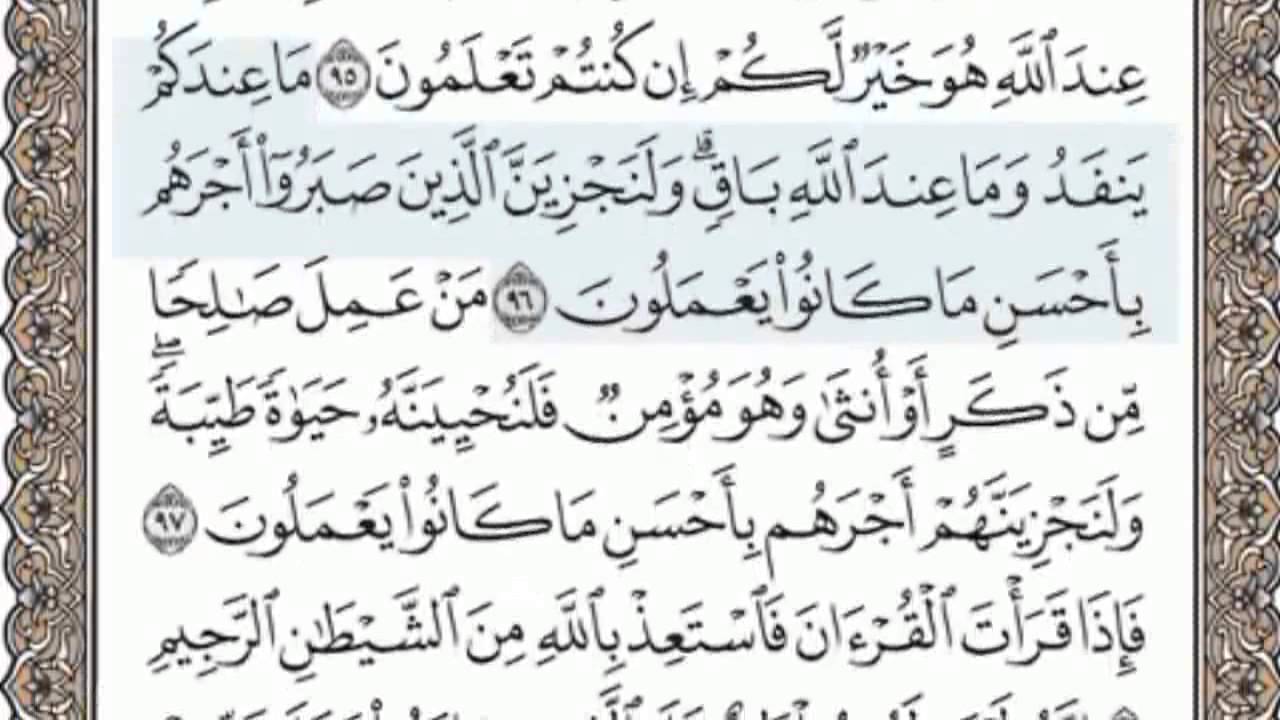 عِندَ ٱللَّهِ هُوَ خَيْرٌۭ لَّكُمْ إِن كُنتُمْ تَعْلَمُونَ ٩٥ مَا عِندَكُمْ
يَنفَدُ وَمَا عِندَ ٱللَّهِ بَاقٍۢ ۗ وَلَنَجْزِيَنَّ ٱلَّذِينَ صَبَرُوٓا۟ أَجْرَهُم
بِأَحْسَنِ مَا كَانُوا۟ يَعْمَلُونَ ٩٦ مَنْ عَمِلَ صَـٰلِحًۭا
مِّن ذَكَرٍ أَوْ أُنثَىٰ وَهُوَ مُؤْمِنٌۭ فَلَنُحْيِيَنَّهُۥ حَيَوٰةًۭ طَيِّبَةًۭ ۖ
وَلَنَجْزِيَنَّهُمْ أَجْرَهُم بِأَحْسَنِ مَا كَانُوا۟ يَعْمَلُونَ ٩٧
فَإِذَا قَرَأْتَ ٱلْقُرْءَانَ فَٱسْتَعِذْ بِٱللَّهِ مِنَ ٱلشَّيْطَـٰنِ ٱلرَّجِيمِ